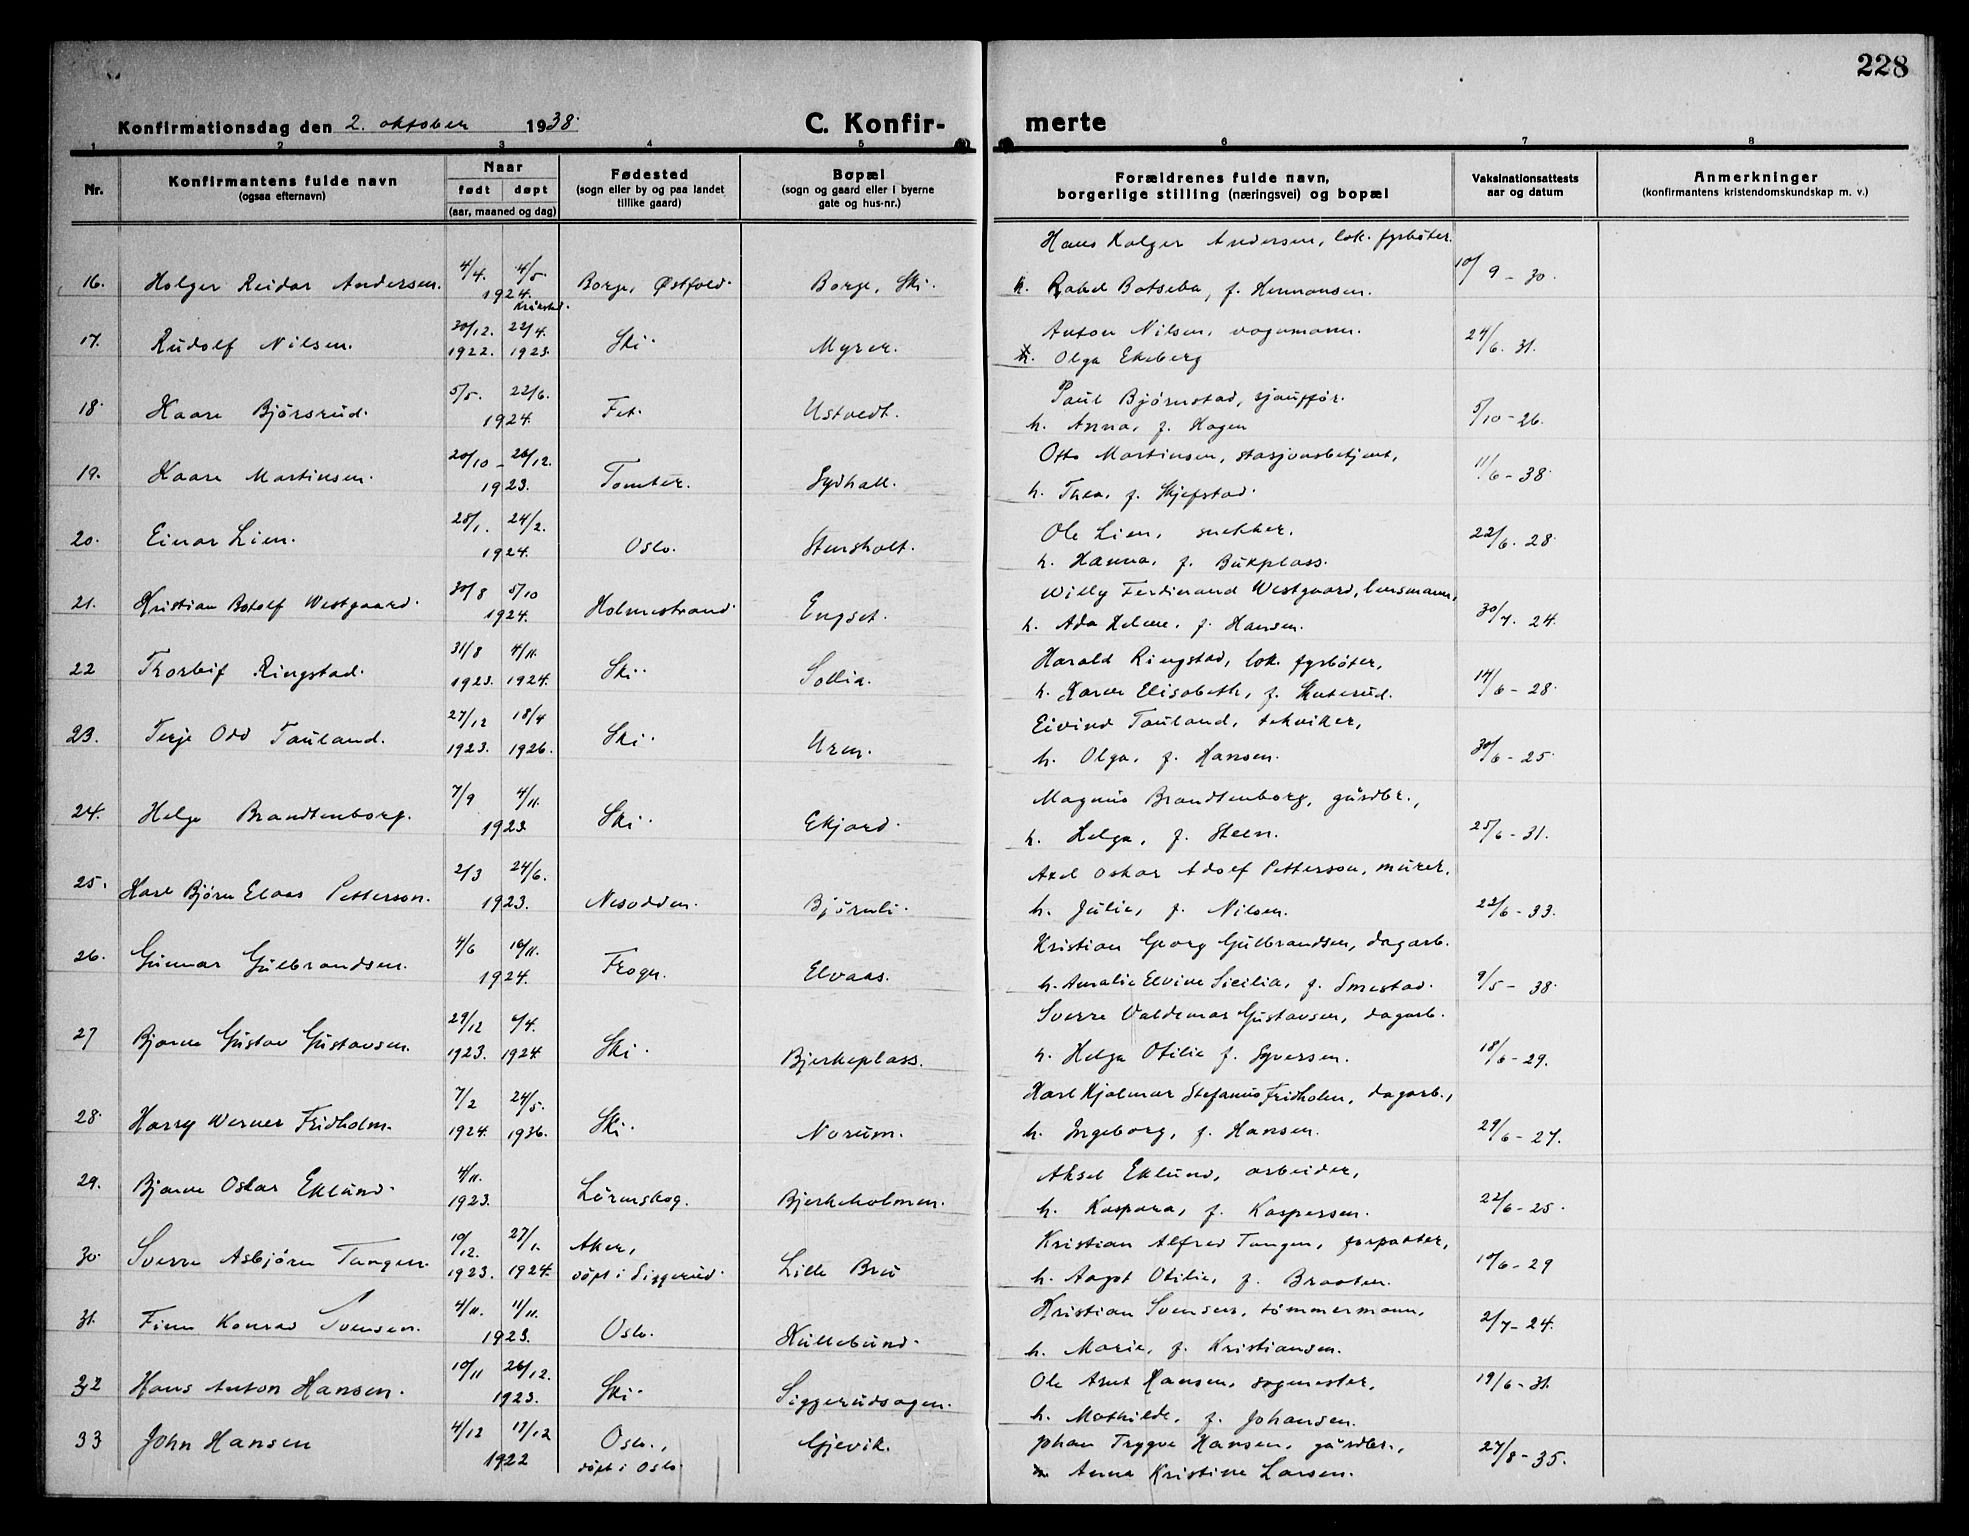 228
Konfirmationsdag den 2. oktober 1938.
C. Konfir-
merte
1 2 3 4 5 6 7 8
Nr.
Konfirmantens fulde navn
(ogsaa efternavn)
Naar
født døpt
(aar, maaned og dag)
Fødested
(sogn eller by og paa landet
tillike gaard)
Bopæl
(sogn og gaard eller i byerne
gate og hus-nr.)
Forældrenes fulde navn,
borgerlige stilling (næringsvei) og bopæl
Vaksinationsattests
aar og datum
Anmerkninger
(konfirmantens kristendomskundskap m. v.)
Hans Holger Andersen, lok. fyrbøter.
16. Holger Reidar Andersen. 4/4. 4/5. 1924. Borge, Østfold. Borge, Ski. h. Rakel Batseba, f. Hermansen. 10/9 - 30.
Kråkstad.
17. Rudolf Nilsen. 30/12. 1922. 22/4. 1923. Ski. Myrer. Anton Nilsen, vognmann. 24/6. 31.
h. Olga Ekeberg
18. Kaare Bjørsrud. 5/5. 22/6. 1924. Fet. Ustvedt. Paul Bjørnstad, sjauffør. 5/10 - 26.
h. Anna, f. Hagen
19. Kaare Martinsen. 20/10 - 26/12. 1923. Tomter. Sydhall. Otto Martinsen, stasjonsbetjent, 11/6 - 38.
h. Thea, f. Skjefstad.
20. Einar Lien. 28/1. 24/2. 1924. Oslo. Stensholt. Ole Lien, snekker. 22/6. 28.
h. Hanna, f. Bukplass.
21. Kristian Botolf Westgaard. 30/8 5/10 1924. Holmestrand. Engset. Willy Ferdinand Westgaard, lensmann, 30/7. 24.
h. Ada Helene, f. Hansen.
22 Thorleif Ringstad. 31/8 1923. 4/11. 1924. Ski. Sollia. Harald Ringstad, lok. fyrbøter, 14/6 - 28.
h. Karen Elisabeth, f. Skuterud.
23. Terje Odd Tauland. 27/12 1923. 18/4 1926. Ski. Uren. Eivind Tauland, tekniker, 30/6 - 25.
h. Olga, f. Hansen.
24. Helge Brandtenborg. 7/9 4/11. 1923 Ski. Ekjord. Magnus Brandtenborg, gårdbr., 25/6 - 31.
h. Helga, f. Steen.
25. Karl Bjørn Elaas Petterson. 2/3 24/6. 1923. Nesodden. Bjørnli. Axel Oskar Adolf Petterson, murer, 22/6 - 33.
h. Julie, f. Nilsen.
26. Gunnar Gulbrandsen. 4/6 16/11. 1924. Frogn. Elvaas. Kristian Georg Gulbrandsen, dagarb. 9/5 - 38.
h. Amalie Elvine Sicilia, f. Smestad.
27 Bjarne Gustav Gustavsen. 29/12 1923. 6/4. 1924. Ski. Bjerkeplass. Sverre Valdemar Gustavsen, dagarb. 18/6 - 29.
h. Helga Otilie f. Syversen.
28. Harry Werner Fridholm. 7/2 1924. 24/5. 1936. Ski. Norum. Karl Hjalmar Stefanus Fridholm, dagarb., 29/6 - 27.
h. Ingeborg, f. Hansen.
29. Bjarne Oskar Eklund. 4/11. 1923. Lørenskog. Bjerkeholmen. Aksel Eklund, arbeider, 22/6 - 25.
h. Kaspara, f. Kaspersen.
30. Sverre Asbjørn Tangen. 10/12. 1923. 27/1. 1924. Aker, døpt i Siggerud. Lille Bru Kristian Alfred Tangen, forpakter, 10/6 - 29
h. Aagot Otilie, f. Braaten.
31. Finn Konrad Svensen. 4/11. 11/11. 1923. Oslo. Kullebund. Kristian Svensen, tømmermann, 2/7 - 24.
h. Marie, f. Kristiansen.
32 Hans Anton Hansen. 10/11 26/12. 1923. Ski. Siggerudsagen. Ole Amt Hansen, sagmester, 19/6 - 31.
h. Mathilde, f. Johansen.
33 John Hansen 4/12 17/12 1922 Oslo., døpt i Oslo. Gjevik. Johan Trygve Hansen, gårdbr., 27/8 - 35.
Anna Kristine Larsen.